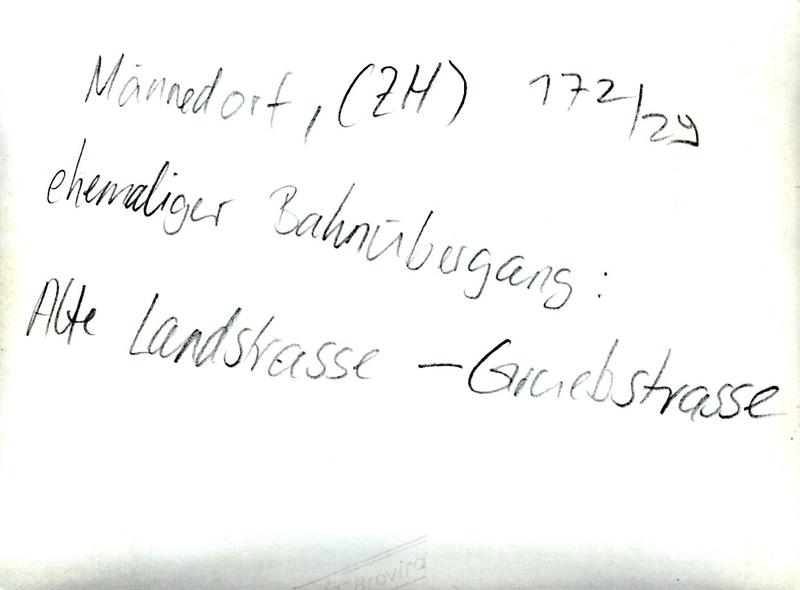 Männedorf, (ZH) 172/29
ehemaliger Bahnübergang:
Alte Landstrasse –
Brovira